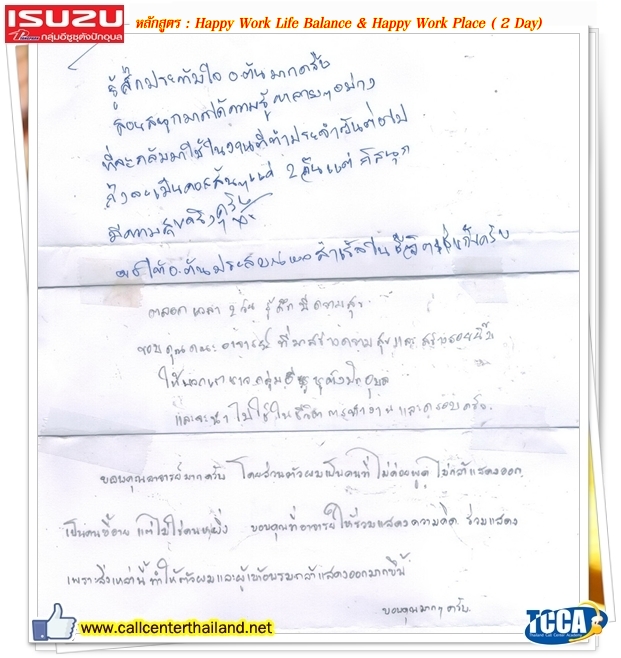 ISUZU
กลุ่มอีซูซุตังปักอุบล
หลักสูตร : Happy Work Life Balance & Happy Work Place ( 2 Day)
รู้สึกประทับใจ อ.ต้นมากครับ
สอนสนุกมากได้ความรู้หลายๆอย่าง
ที่จะกลับมาใช้ในงานที่ทำประจำวันต่อไป
ถึงจะเป็นคอร์สสั้นๆแค่ 2 วันแต่ก็สนุก
มีความสุขจริงๆครับ
ขอให้ อ.ต้นประสบผลสำเร็จในชีวิต ครับ
ตลอดเวลา 2 วัน รู้สึกมีความสุข
ขอบคุณคณะอาจารย์ ที่มาสร้างความสุขและสร้างรอยยิ้ม
ให้พวกเราชาวกลุ่มอีซูซุตังปักอุบล
และจะนำไปใช้ในชีวิตการทำงานและครอบครัว.
ขอบคุณอาจารย์มากครับ โดยส่วนตัวผมเป็นคนที่ไม่ค่อยพูด ไม่กล้าแสดงออก
เป็นคนขี้อาย แต่ไม่ใช่คนหยิ่ง ขอบคุณที่อาจารย์ให้ร่วมแสดงความคิด ร่วมแสดง
เพราะสิ่งเหล่านี้ ทำให้ตัวผมและผู้เข้าอบรมกล้าแสดงออกมากขึ้น
ขอบคุณมากๆ ครับ.
www.callcenterthailand.net
TCCA
Thailand Call Center Academy